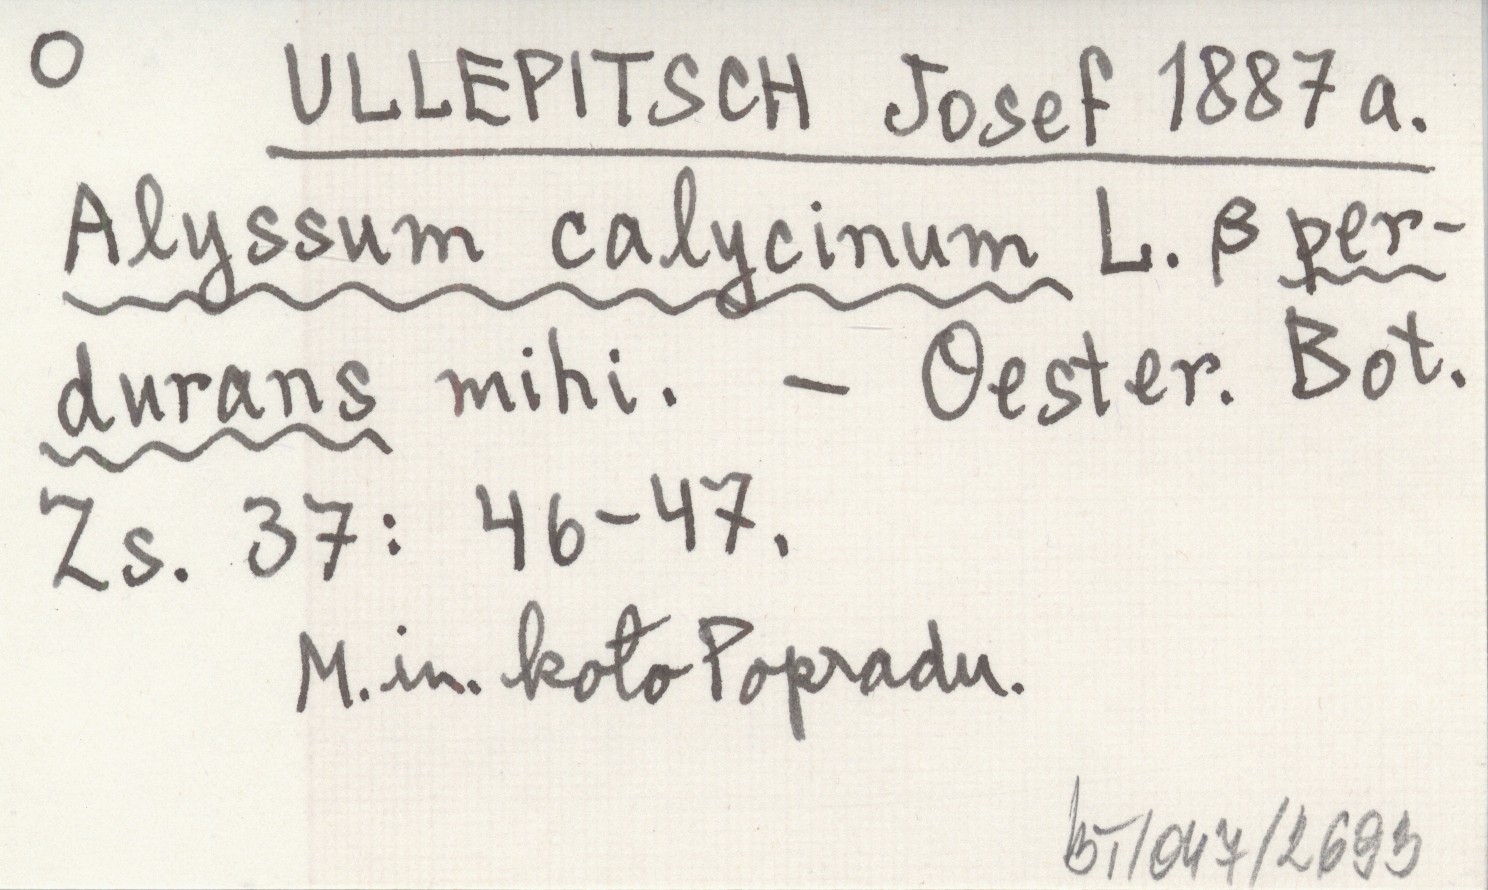 O ULLEPITSCH Josef 1887 a.
Alyssum calycinum L. β per-
durans mihi. – Oester. Bot.
Zs. 37: 46-47.
M. in. koło Popradu.
bT/047/2693